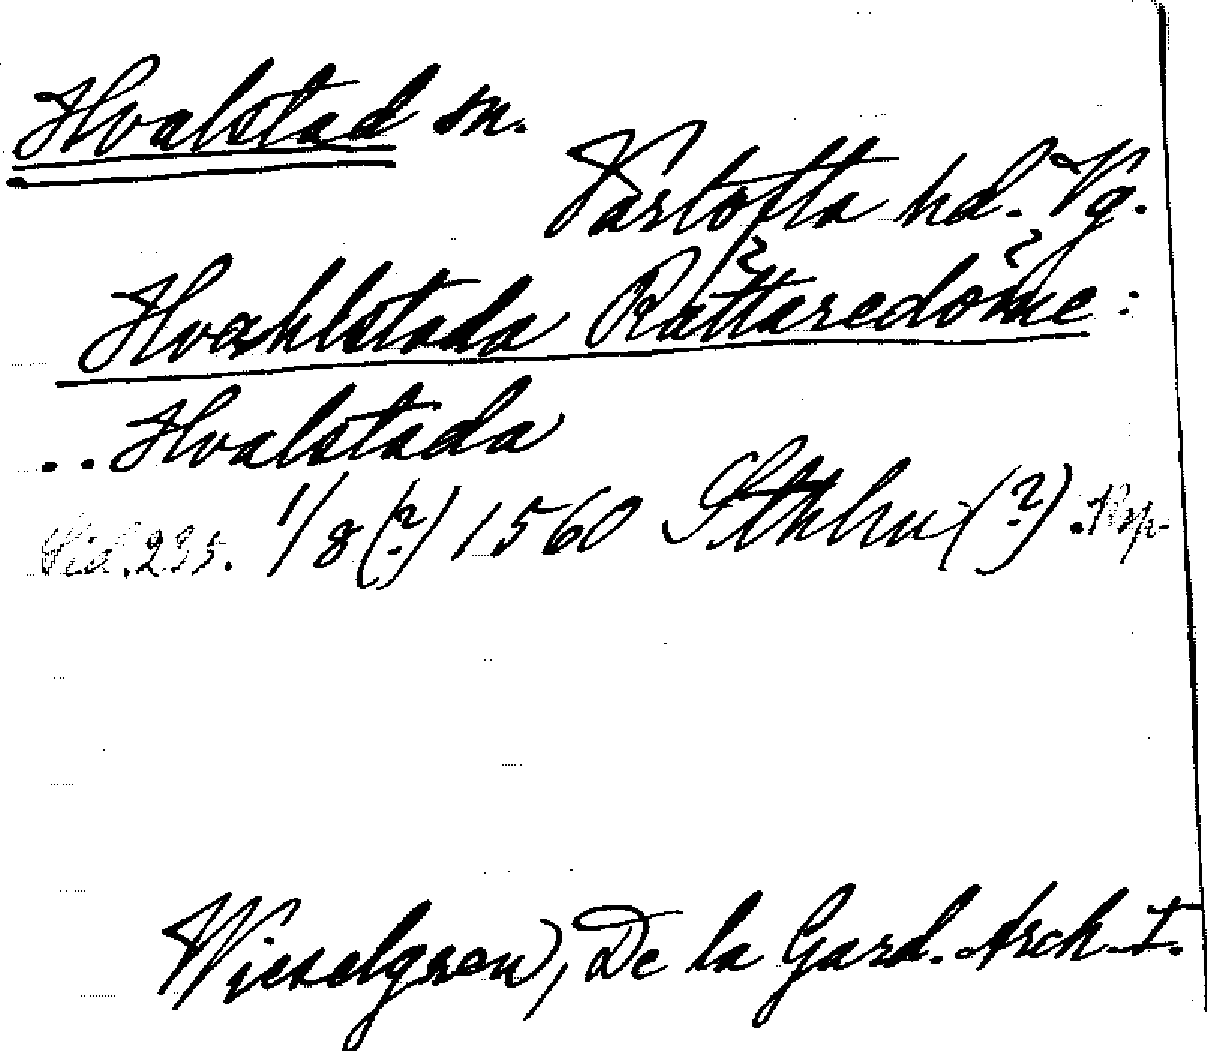 Hvalstad sn.
Vartofta hd. Vg.
Hvahlstada Rättaredöme:
..Hvalstada
Sid. 235. 1/8 (?) 1560 Sthlm (?).
Wieselgren, De la Gard. Arch. I.